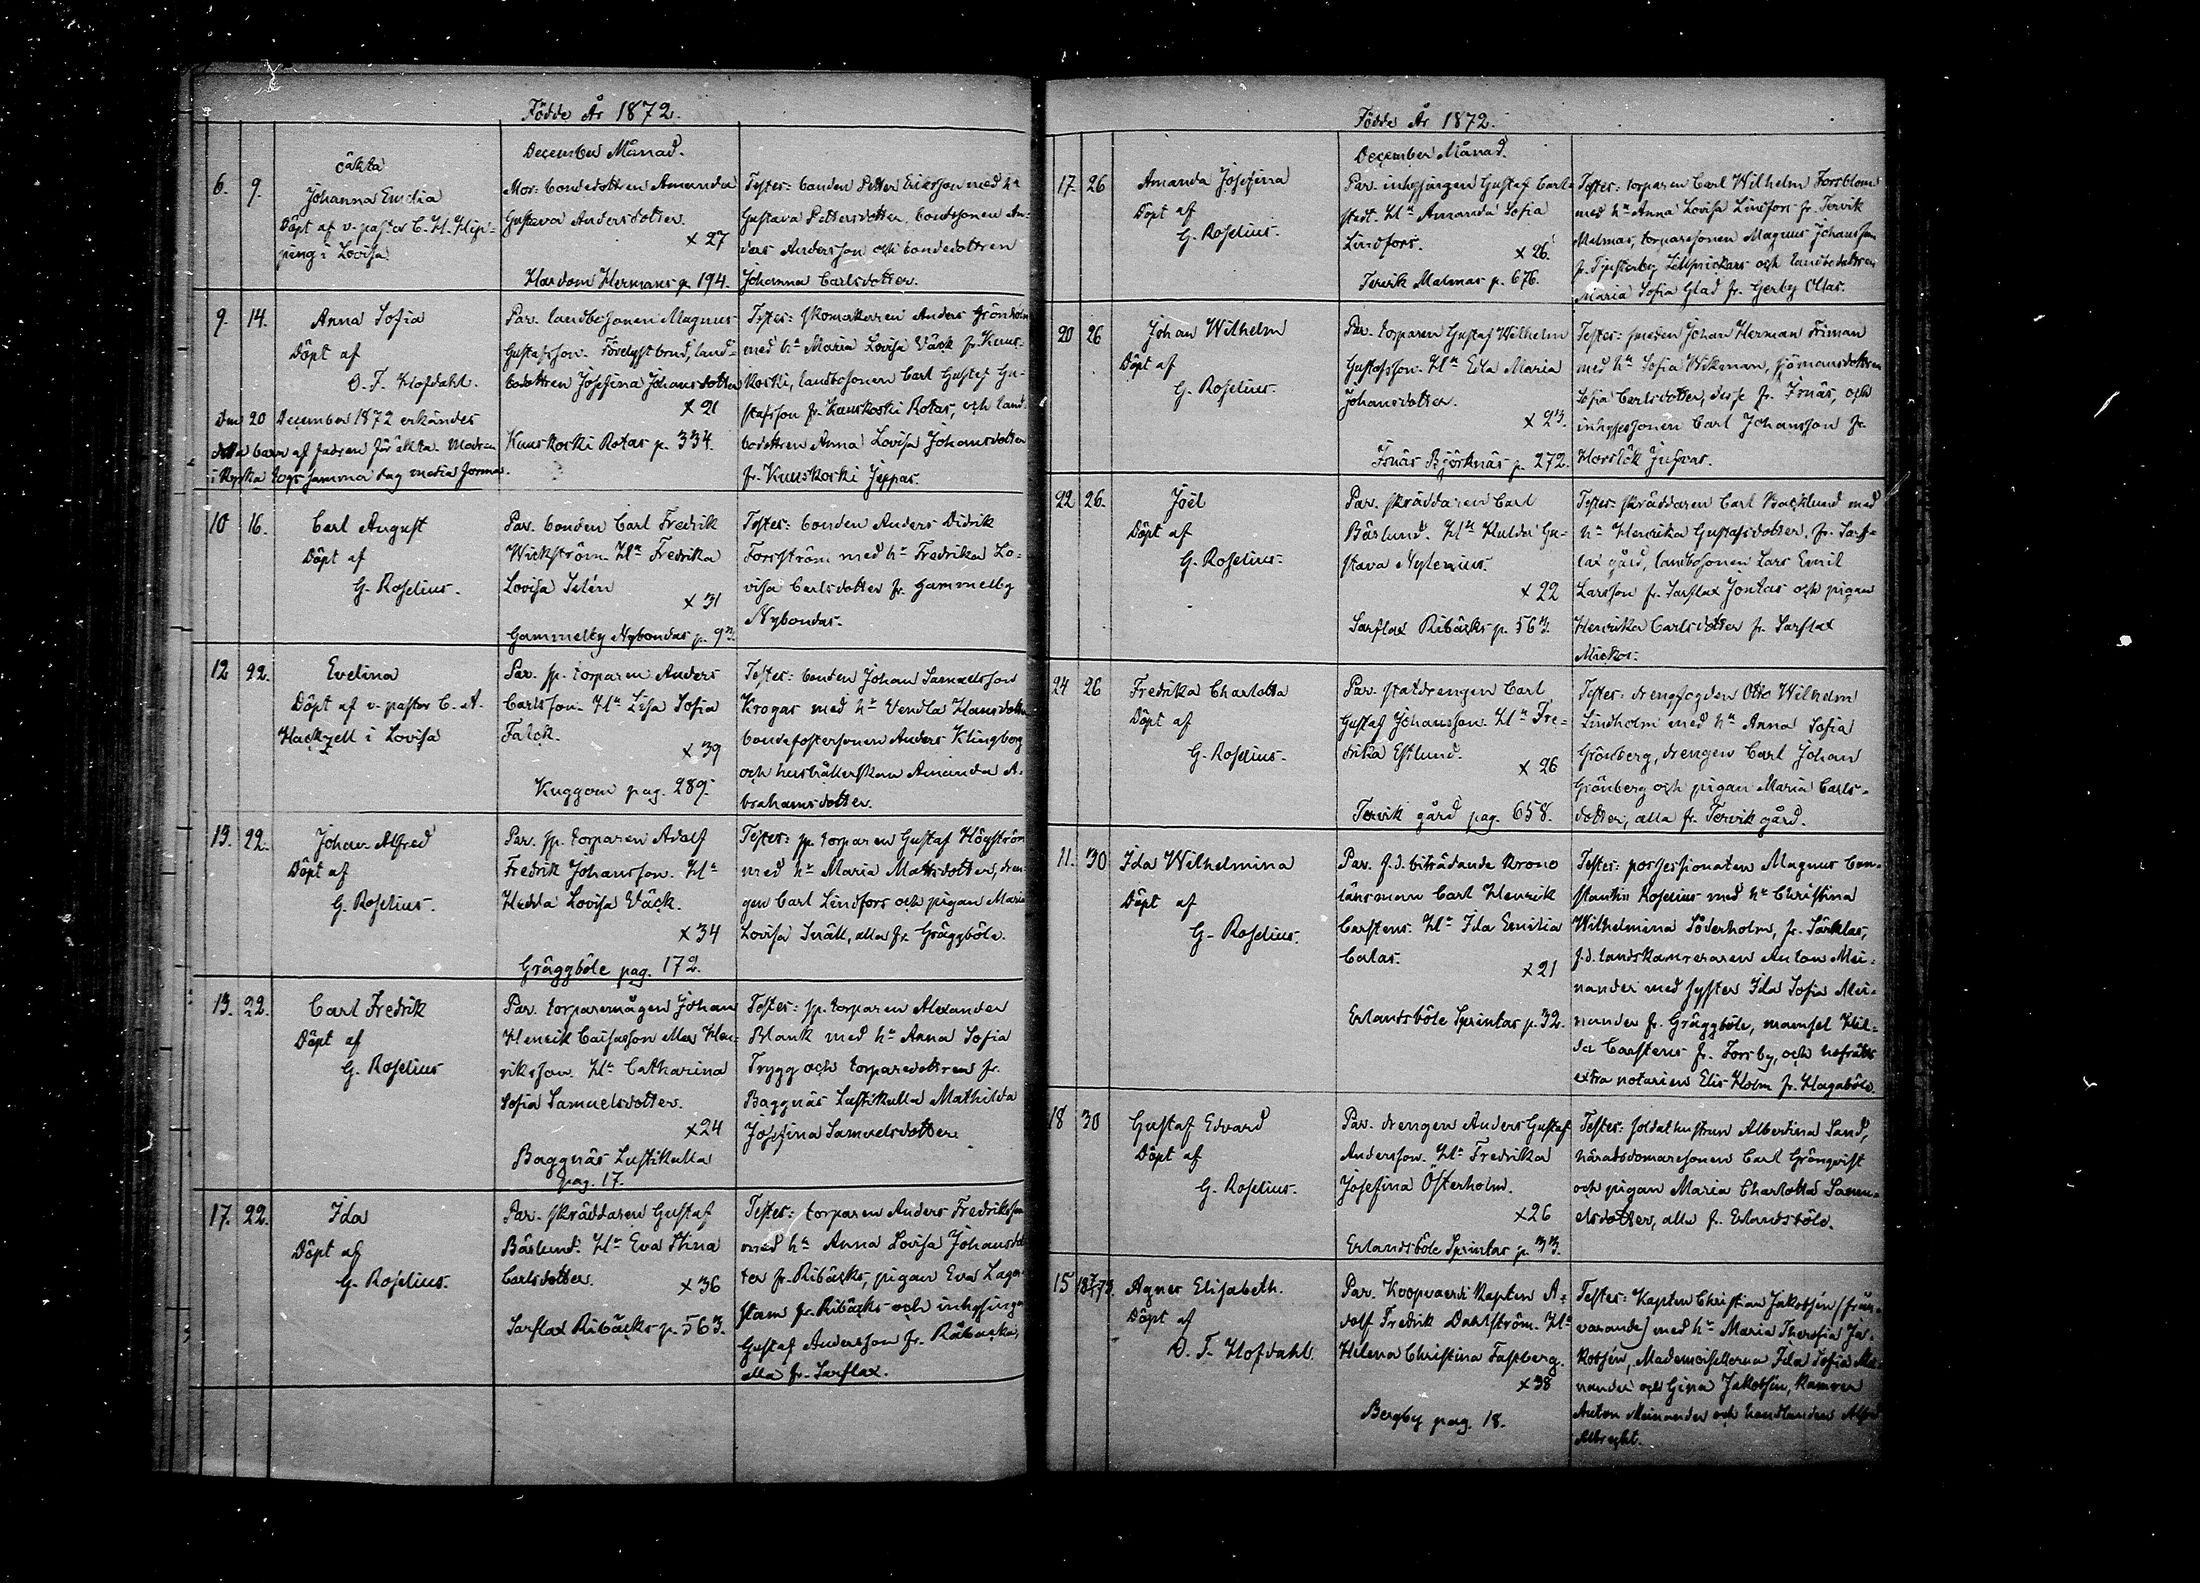 Födde År 1872.
December Månad.
6. 9. oäkta
Johanna Emelia
Döpt af v. pastor C. H. Hip-
ping i Lovisa
Mor: bondedottren Amanda
Gustava Andersdotter.
x 27
Hardom Hermans p. 194.
Testes: bonden Petter Eriksson med hu
Gustava Pettersdotter, bondsonen An-
ders Andersson och bondedottren
Johanna Carlsdotter.
9. 14. Anna Sofia
Döpt af
O. F. Hofdahl.
Den 20 December 1872 erkändes
detta barn af fadren för äkta. Modren
i kyrka togs samma dag media forma.
Par. landbosonen Magnus
Gustafsson. Förelysst brud, land-
bodottren Josefina Johansdotter
x 21
Kuuskoski Rotas p. 334.
Testes: skomakaren Anders Grönholm
med hu Maria Lovisa Väck fr. Kuus-
koski, landbosonen Carl Gustaf Gu-
stafsson fr. Kuuskoski Rotas, och land-
bodottren Anna Lovisa Johansdotter
fr. Kuuskoski Jeppas.
10 16. Carl August
Döpt af
G. Roselius.
Par. bonden Carl Fredrik
Wickström. Hu Fredrika
Lovisa Selén
x 31
Gammelby Nybondas p. 93.
Testes: bonden Anders Didrik
Forsström med hu Fredrika Lo-
visa Carlsdotter fr. Gammelby
Nybondas.
12 22. Evelina
Döpt af v. pastor C. A.
Hackzell i Lovisa
Par. sp. torparen Anders
Carlsson. Hu Lisa Sofia
Falck.
x 39
Kuggom pag. 289.
Testes: bonden Johan Samuelsson
Krogar med hu Vendla Hansdotter
bondefostersonen Anders Klingborg
och hushållerskan Amanda A-
brahamsdotter.
13. 22. Johan Alfred
Döpt af
G. Roselius.
Par. sp. torparen Adolf
Fredrik Johansson. Hu
Hedda Lovisa Väck.
x 34
Gräggböle pag. 172.
Testes: sp. torparen Gustaf Högström
med hu Maria Mattsdotter, dren-
gen Carl Lindfors och pigan Maria
Lovisa Snäll, alla fr. Gräggböle.
13. 22. Carl Fredrik
Döpt af
G. Roselius
Par. torparemågen Johan
Henrik
riksson. Hu Catharina
Sofia Samuelsdotter.
x 24
Baggnäs Lustikulla
pag. 17.
Testes: sp. torparen Alexander
Blank med hu Anna Sofia
Trygg och torparedottren fr.
Baggnäs Lustikulla Mathilda
Josefina Samuelsdotter.
17. 22. Ida
Döpt af
G. Roselius.
Par. skräddaren Gustaf
Bäslund. Hu Eva Stina
Carlsdotter.
x 36
Sarflax Ribäcks p. 563.
Testes: torparen Anders Fredriksson
med hu Anna Lovisa Johansdot-
ter fr. Ribäcks, pigan Eva Lager-
stam fr. Ribäcks och inhysingen
Gustaf Andersson fr. Råbacka,
alla fr. Sarflax.
Födde År 1872.
December Månad.
17. 26 Amanda Josefina
Döpt af
G. Roselius.
Par. inhysingen Gustaf Carl-
stedt. Hu Amanda Sofia
Lindfors.
x 26.
Tervik Malmas p. 676.
Testes: torparen Carl Wilhelm Forsblom
med hu Anna Lovisa Lindfors fr. Tervik
Malmas, torparesonen Magnus Johansson
fr. Tjusterby Lillprickars och landbodottren
Maria Sofia Glad fr. Gerby Ollas.
20 26 Johan Wilhelm
Döpt af
G. Roselius.
Par. torparen Gustaf Wilhelm
Gustafsson. Hu Eda Maria
Johansdotter.
x 23.
Isnäs Björknäs p. 272.
Testes: smeden Johan Herman Friman
med hu Sofia Wikman, sjömansdottren
Sofia Carlsdotter, desse fr. Isnäs, och
inhysessonen Carl Johansson fr.
Horslök Jusvas.
22 26. Joel
Döpt af
G. Roselius.
Par. skräddaren Carl
Bäslund. Hu Hulda Gu-
stava Nylenius.
x 22
Sarflax Ribäcks p. 563.
Testes: skräddaren Carl Backlund med
hu Henrika Gustafsdotter, fr. Sarf-
lax gård, landbosonen Lars Emil
Larsson fr. Sarflax Jontas och pigan
Henrika Carlsdotter fr. Sarflax
Mickos.
24 26 Fredrika Charlotta
Döpt af
G. Roselius.
Par. statdrengen Carl
Gustaf Johansson. Hu Fre-
drika Estlund.
x 26
Tervik gård pag. 658.
Testes: drengfogden Otto Wilhelm
Lindholm med hu Anna Sofia
Grönberg, drengen Carl Johan
Grönberg och pigan Maria Carls-
dotter, alla fr. Tervik gård.
11. 30 Ida Wilhelmina
Döpt af
G. Roselius.
Par. f.d. biträdande krono
länsmann Carl Henrik
Carstens. Hu Ida Emilia
Calas.
x 21
Erlandsböle Sprintas p. 32.
Testes: possessionaten Magnus Con-
stantin Roselius med hu Christina
Wilhelmina Söderholm, fr. Särklax,
f.d. landskamreraren Anton Mei-
nander med syster Ida Sofia Mei-
nander fr. Gräggböle, mamsel Hil-
da Carstens fr. Forsby, och hofrätts
extra notarien Elis Holm fr. Hagaböle.
18 30 Gustaf Edvard
Döpt af
G. Roselius.
Par. drengen Anders Gustaf
Andersson. Hu Fredrika
Josefina Österholm.
x 26
Erlandsböle Sprintas p. 33.
Testes: soldathustrun Albertina Sand,
häradsdomaresonen Carl Grönqvist
och pigan Maria Charlotta Samu-
elsdotter, alla fr. Erlandsböle.
15 Agnes Elisabeth.
Döpt af
O. F. Hofdahl.
Par. Koopvaerdi kapten A-
dolf Fredrik Dahlström. Hu
Helena Christina Fastberg.
x 38
Bergby pag. 18.
Testes: Kapten Christian Jakobsén (från-
varande) med hu Maria Theresia Ja-
kobsén, Mademoisellerna Ida Sofia Mei-
nander och Gina Jakobsén, kamrer
Anton Meinander och handlanden Alfred
Albreght.